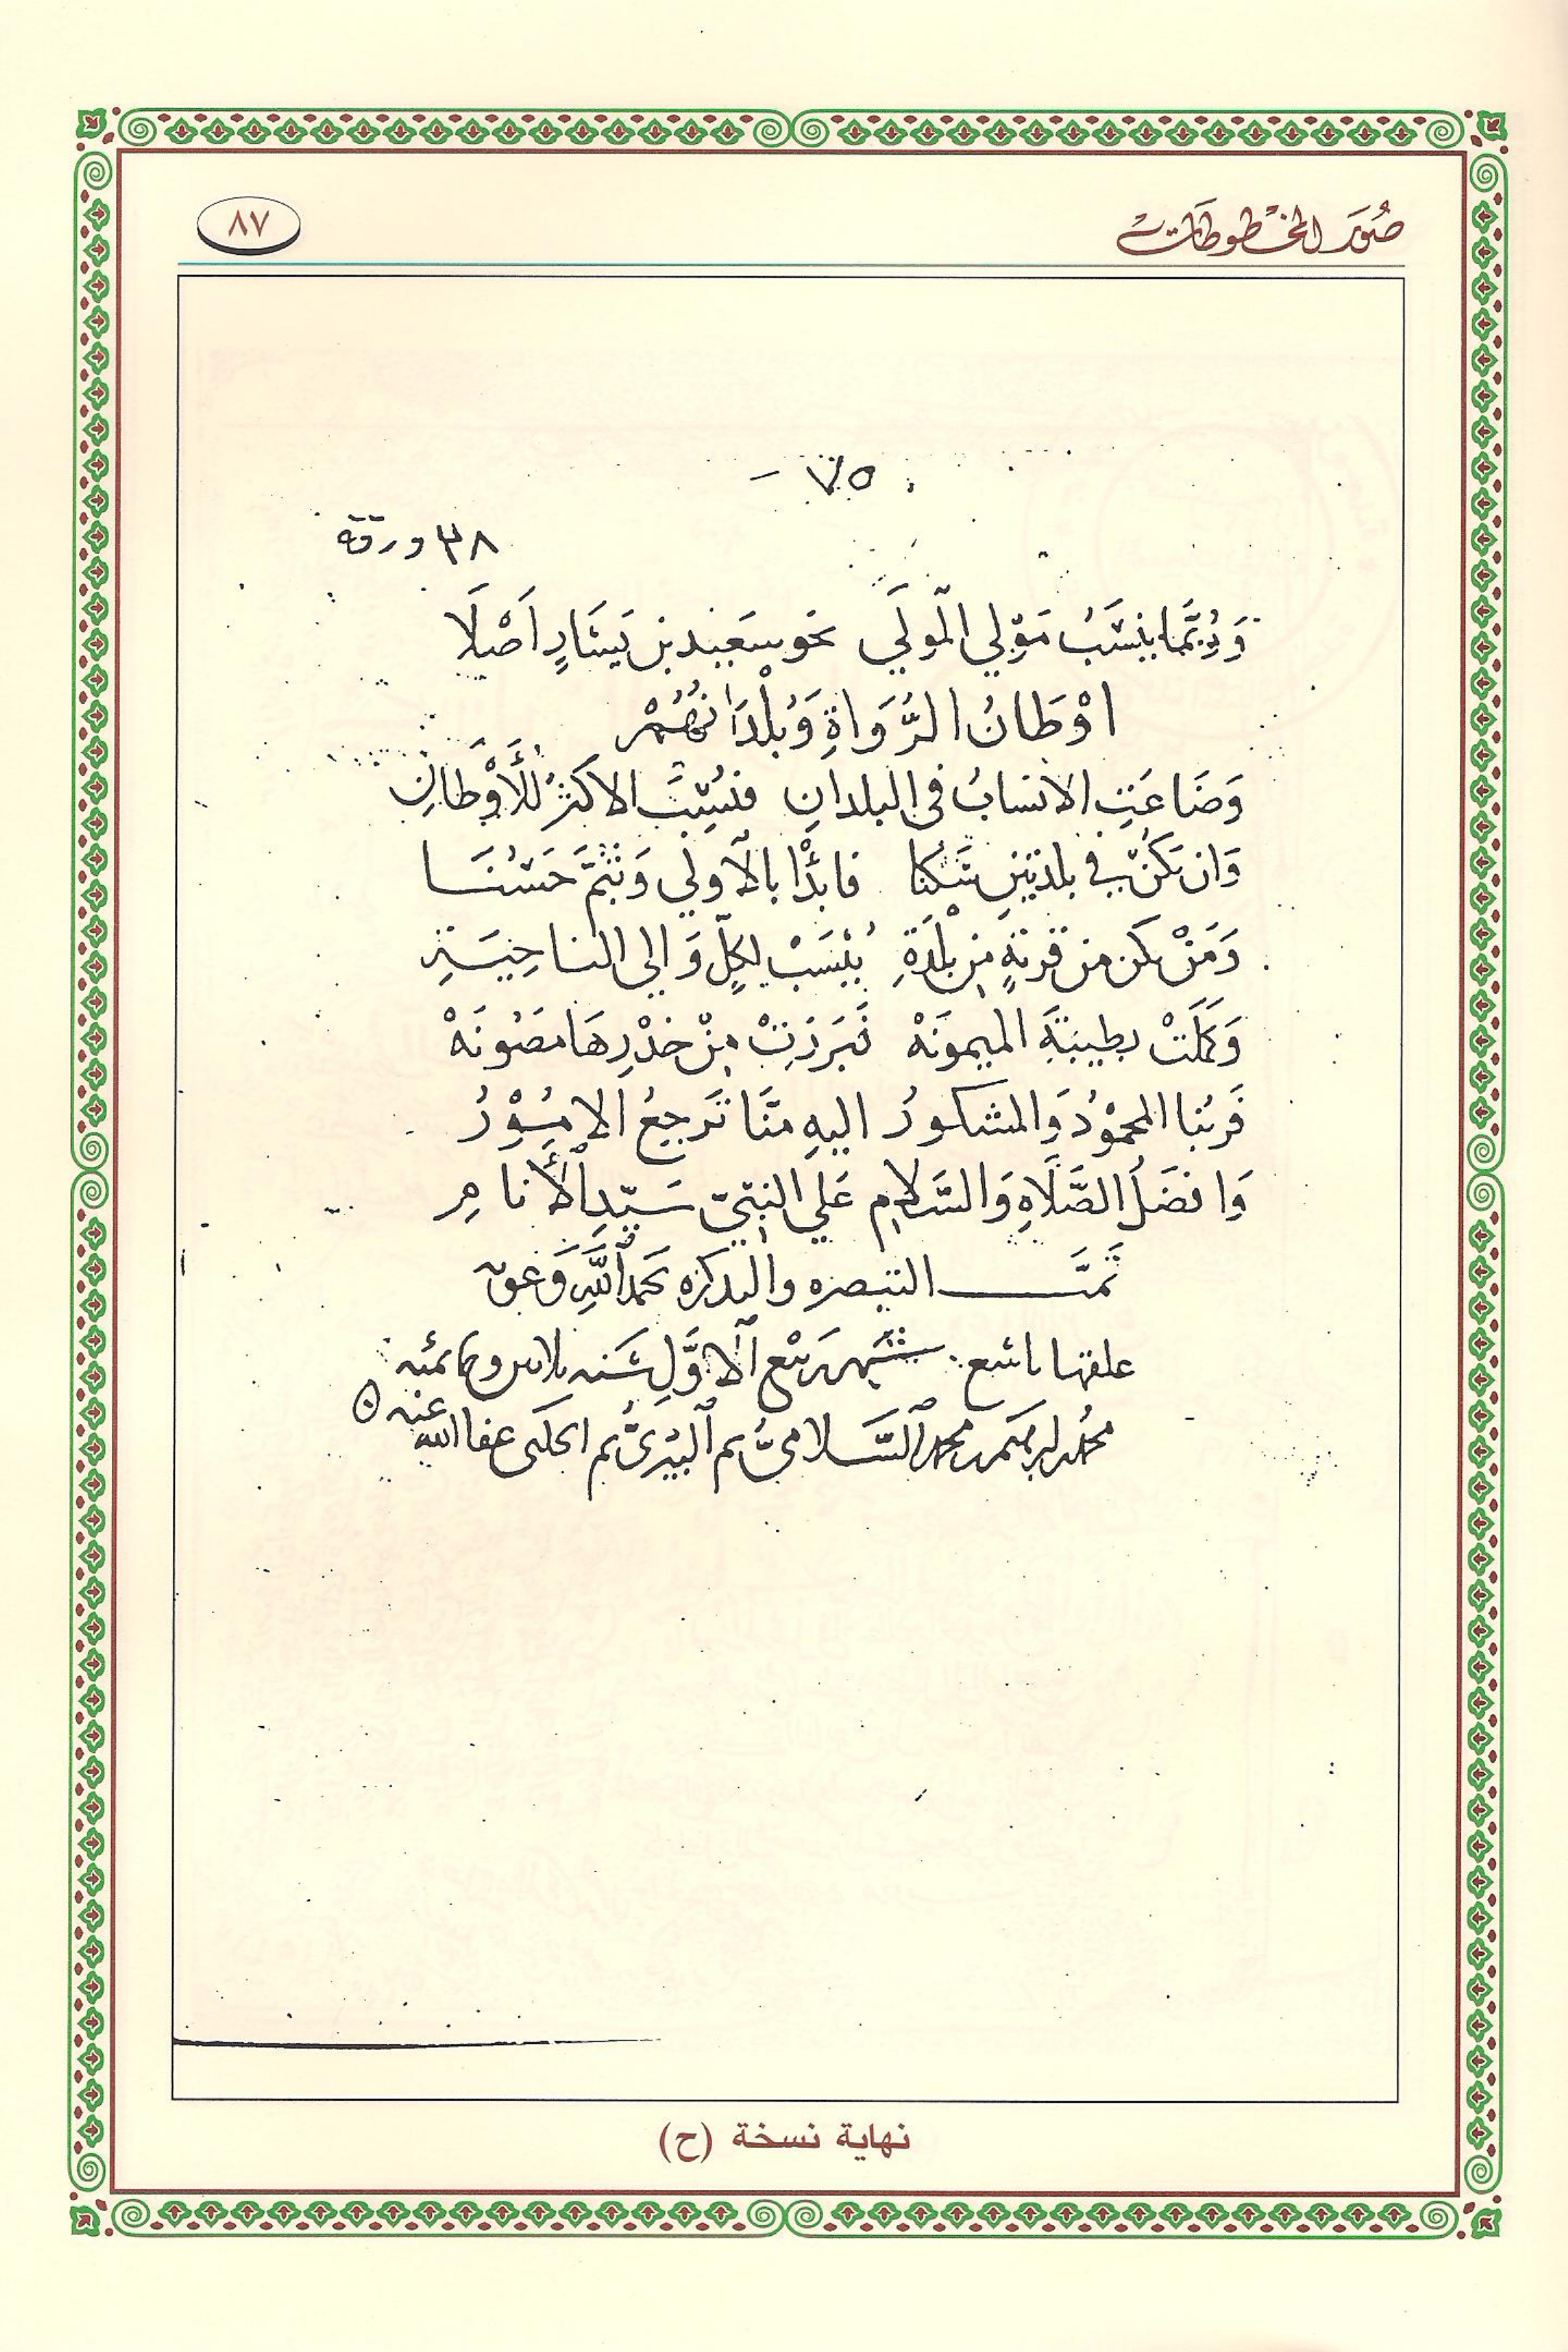 صُوَر المخطوطات
٨٧
٧٥ -
٣٨ ورقة
وَرُبَّما يُنسَبُ مَوْلي المَولَي نحو سَعيد بن يَسَارٍ اَصْلَا
اوْطَانُ الرُّوَاةِ وَبُلْدَانُهُمْ
وَضَاعَتِ الانسابُ في البلدانِ فنُسِبَ الاكثرُ للأَوْطانِ
وَان يَكُن في بلدتينِ سَكنا فابدْا بالاولي وَبثمَّ حَسُنَا
وَمَنْ يكن من قريةٍ مِن بلْدَةِ يُنْسَبْ لكلٍّ وَالي الناحِيَةِ
وَكَمَلَتْ بطيبَةَ الميمونَهْ فَبَرَزتْ مِنْ خدْرِهَا مصُونَهْ
فَربُنا المحموْدُ وَالمشكورُ اليهِ مِنَّا تَرجعُ الامُوْرُ
وَافضَلُ الصَّلَاهِ وَالسَّلامِ عَلي النبيّ سَيّدِ الأنامِ
تمَّت التبصره والتذكره بحمد اللَّهِ وَعونه
علقها تاسع شهر ربيع الاوَّلِ سَنه ثلاثين وثمانمئه
محمد بن محمد السَّلاميُّ ثم البيْريُّ ثم الحلبي عفا الله عنه
نهاية نسخة (ح)